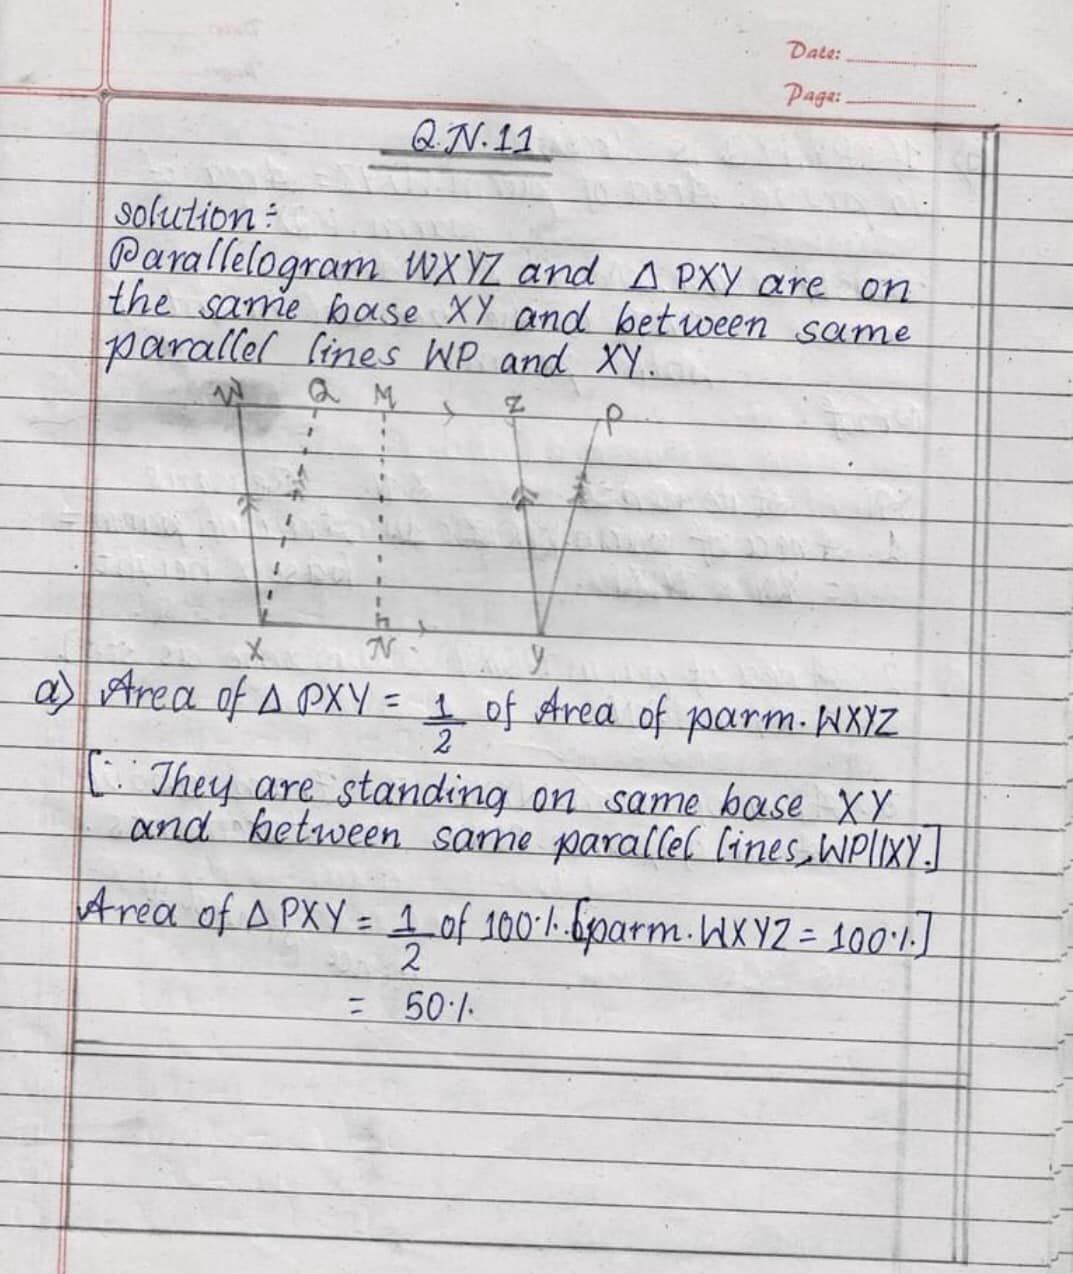 Date:
Page:
Q.N.11
solution:-
Parallelogram WXYZ and Δ PXY are on
the same base XY and between same
parallel lines WP and XY.
W Q M Z P
X N Y
a) Area of Δ PXY = 1/2 of Area of parm. WXYZ
[∵ They are standing on same base XY
and between same parallel lines, WP||XY.]
Area of Δ PXY = 1/2 of 100% [parm. WXYZ = 100%]
= 50%